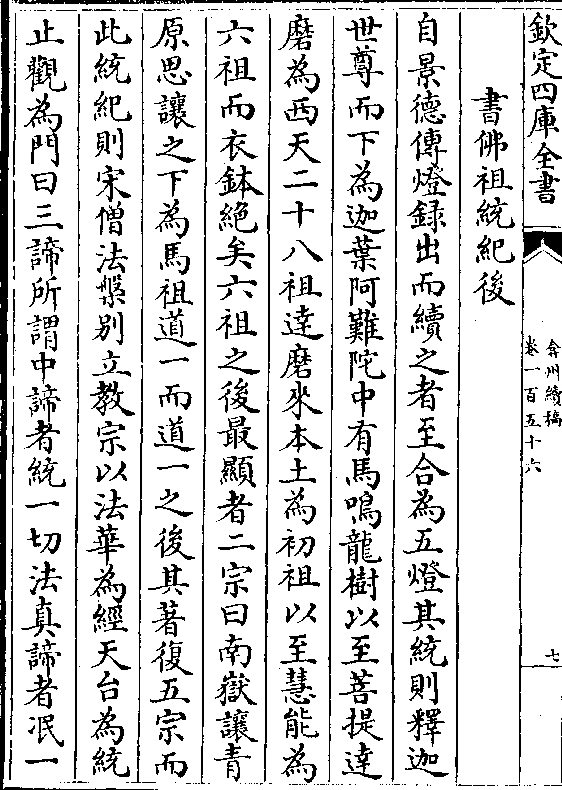 欽定四庫全書
弇州續稿
卷一百五十六
七
書佛祖統紀後
自景德傳燈録出而續之者至合為五燈其統則釋迦
世尊而下為迦葉阿難陀中有馬鳴龍樹以至菩提達
磨為西天二十八祖達磨來本土為初祖以至慧能為
六祖而衣鉢絶矣六祖之後最顯者二宗曰南嶽讓青
原思讓之下為馬祖道一而道一之後其著復五宗而
此統紀則宋僧法槃别立教宗以法華為經天台為統
止觀為門曰三諦所謂中諦者統一切法真諦者泯一